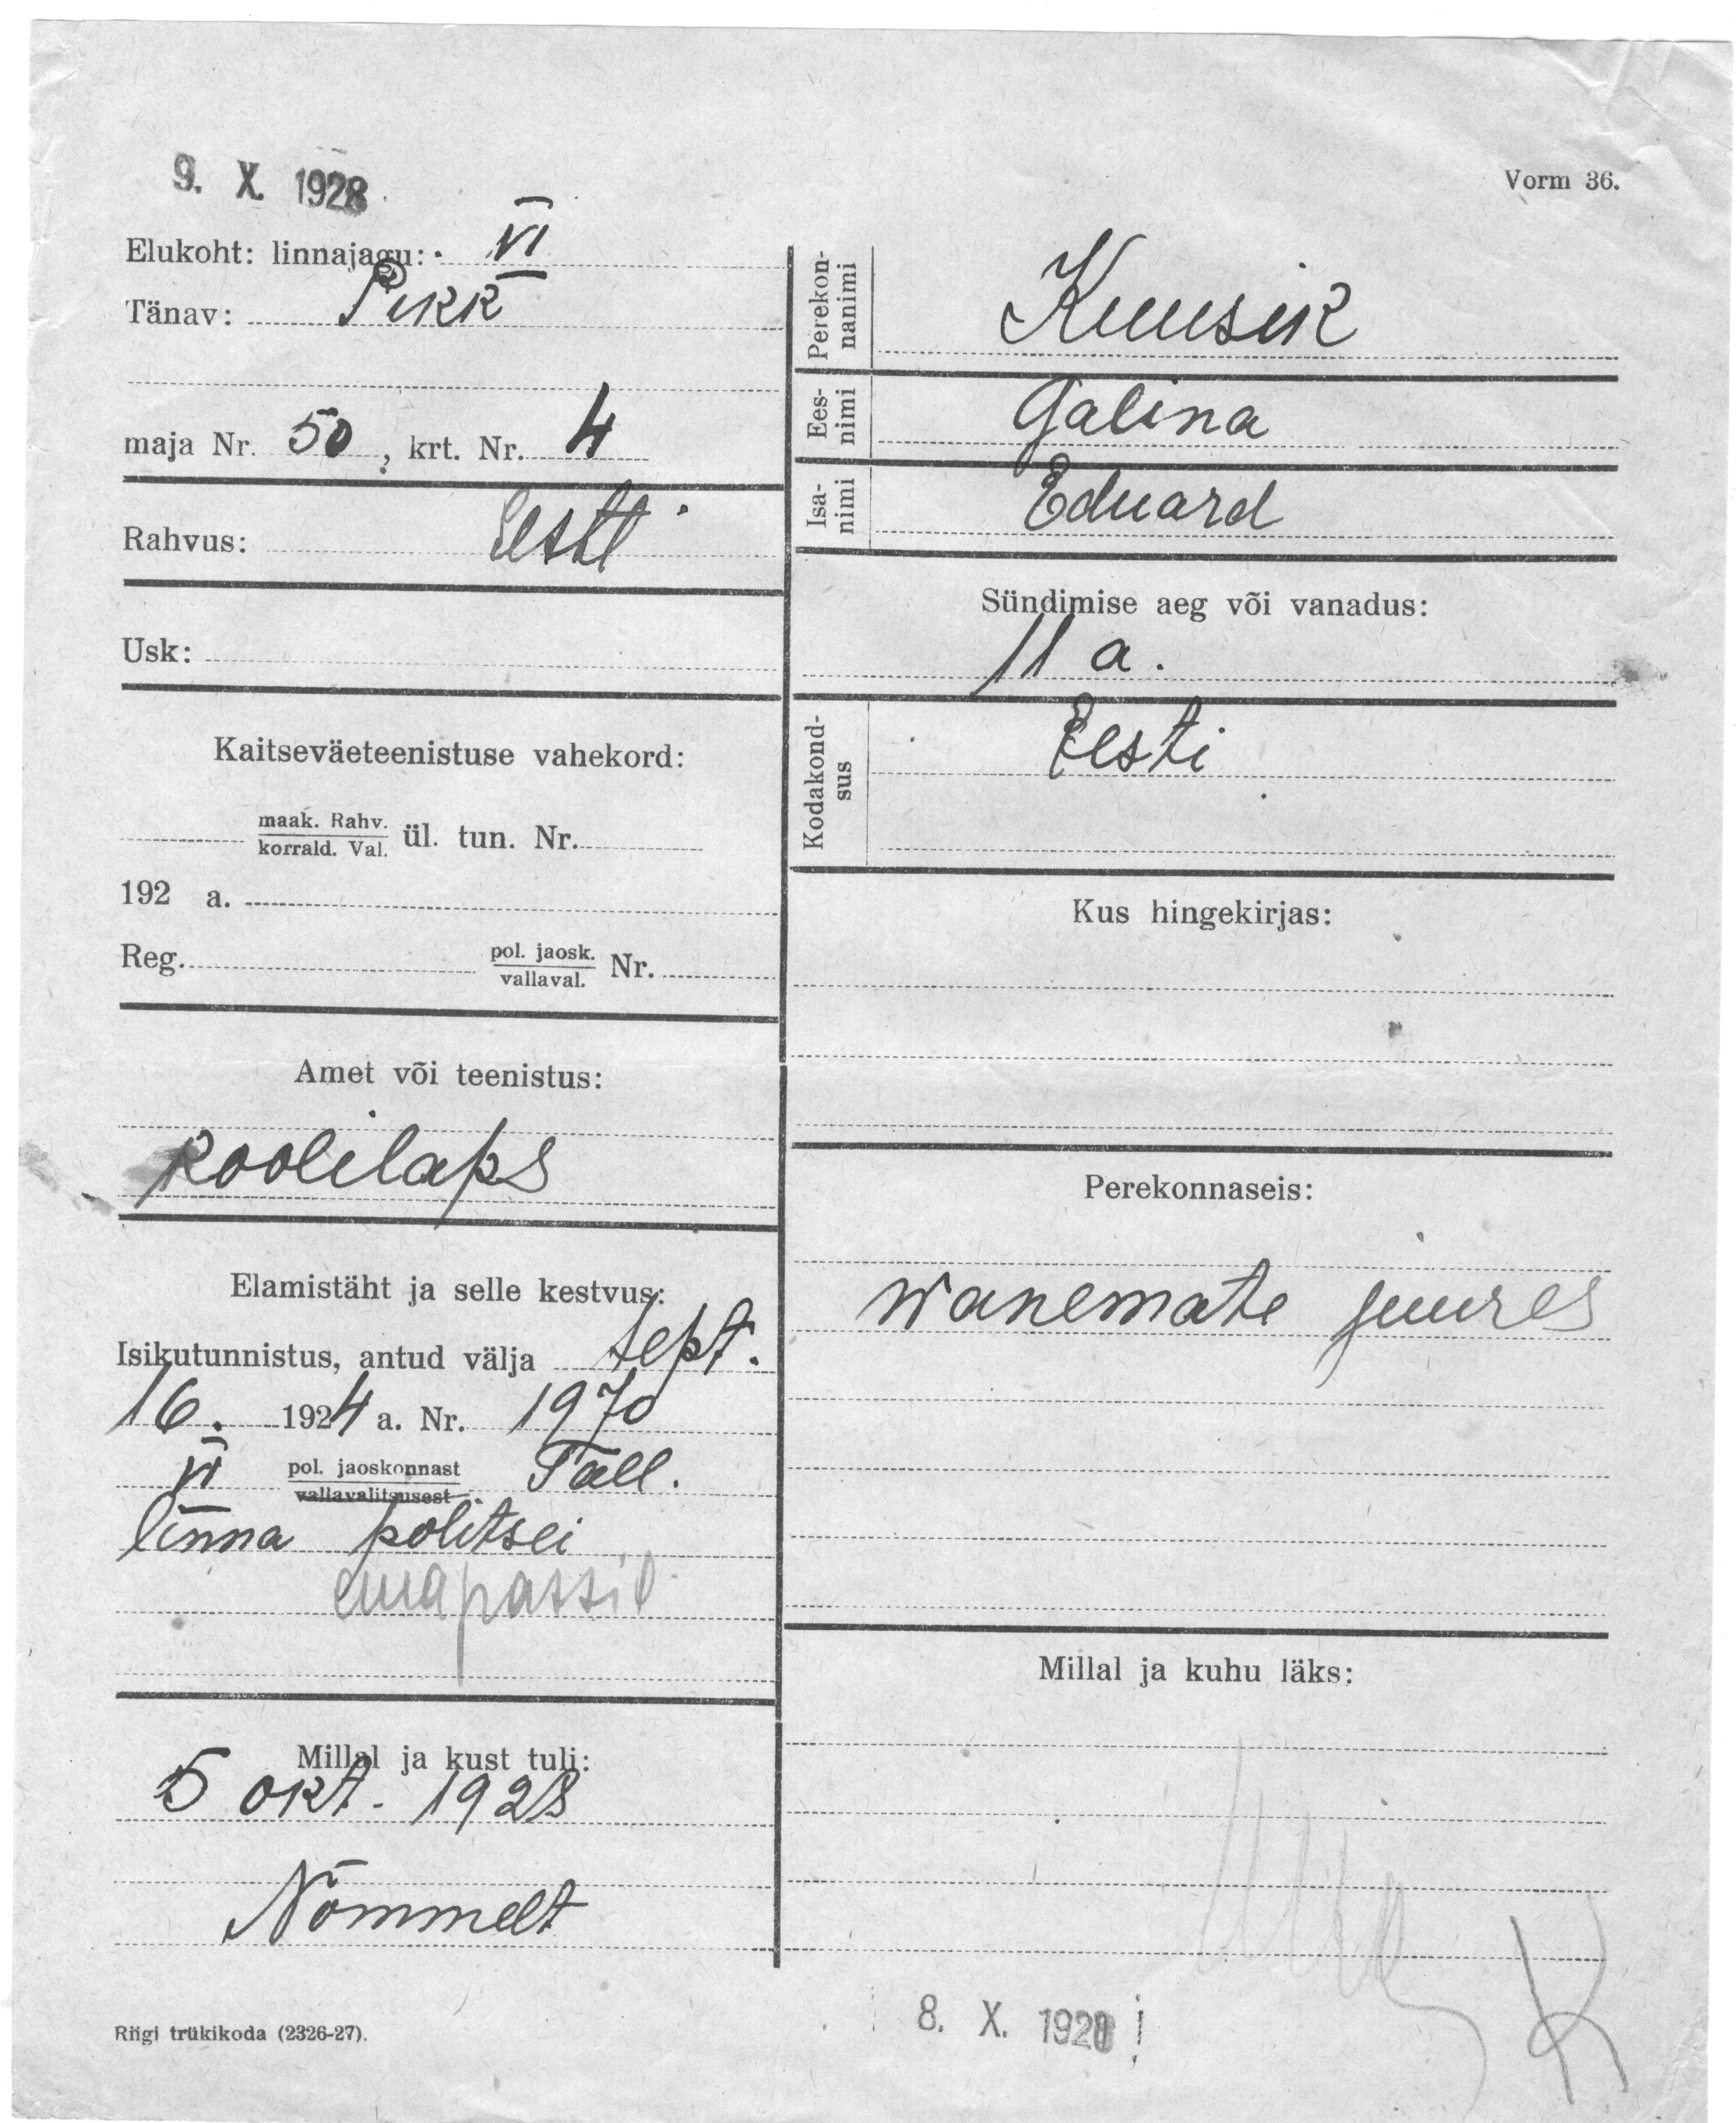 9. X. 1928
Vorm 36.
Elukoht: linnajagu: VI
Tänav: Pikk
maja Nr. 50, krt. Nr. 4
Rahvus: Eesti
Usk:
Kaitseväeteenistuse vahekord:
maak. Rahv.
korrald. Val. ül. tun. Nr.
192 a.
Reg. pol. jaosk.
vallaval. Nr.
Amet või teenistus:
koolilaps
Elamistäht ja selle kestvus:
Isikutunnistus, antud välja sept.
16. 1924 a. Nr. 1970
VI pol. jaoskonnast Tall.
vallavalitsusest
linna politsei
emapassil
Millal ja kust tuli:
5 okt. 1928
Nõmmelt
Riigi trükikoda (2326-27).
Perekon-
nanimi Kuusik
Ees-
nimi Galina
Isa-
nimi Eduard
Sündimise aeg või vanadus:
11 a.
Kodakond-
sus Eesti
Kus hingekirjas:
Perekonnaseis:
wanemate juures
Millal ja kuhu läks:
K
8. X. 1928